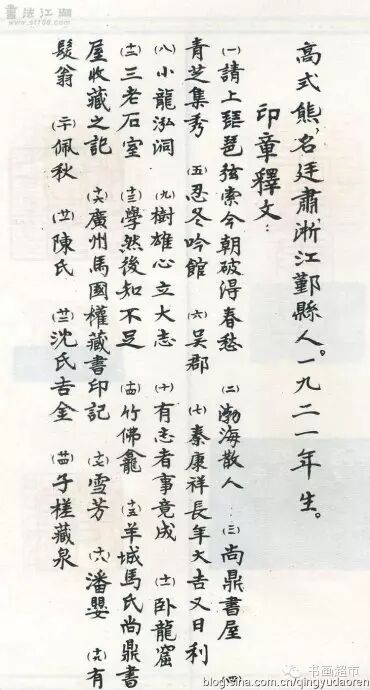 書法江湖
www.sf108.com
高式熊，名廷肅浙江鄞縣人。一九二一年生。
印章釋文：
㈠請上琵琶弦索今朝破得春愁 ㈡渤海散人 ㈢尚鼎書屋 ㈣
青芝集秀 ㈤忍冬吟館 ㈥吴郡 ㈦秦康祥長年大吉又日利
㈧小龍泓洞 ㈨樹雄心立大志 ㈩有志者事竟成 (十一)卧龍窟
(十二)三老石室 (十三)學然後知不足 (十四)竹佛龕 (十五)羊城馬氏尚鼎書
屋收藏之記 (十六)廣州馬國權藏書印記 (十七)雪芳 (十八)潘嬰 (十九)有
髮翁 (二十)佩秋 (廿一)陳氏 (廿二)沈氏吉金 (廿四)子槎藏泉
书画超市
blog.sina.com.cn/qingyudaoren